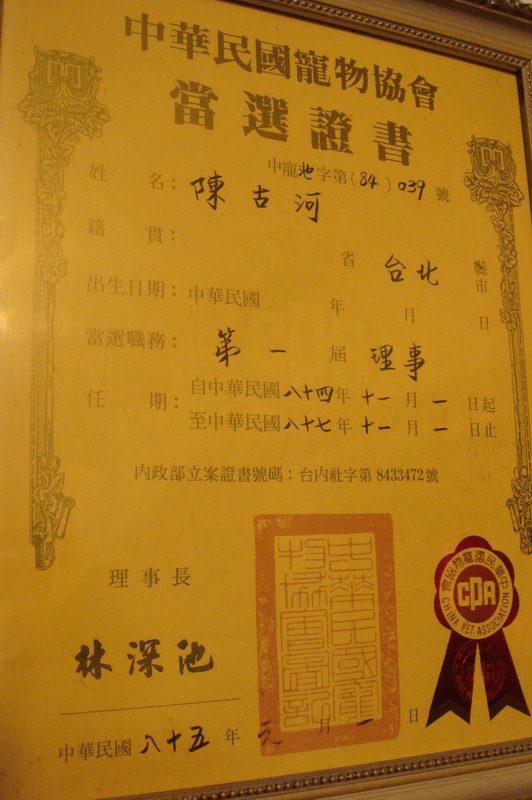 中華民國寵物協會
當選證書
中寵池字第(84)039號
姓名：陳古河
籍貫：
省台北縣市
出生日期：中華民國 年 月 日
當選職務：第一屆理事
任期：自中華民國八十四年十一月一日起
至中華民國八十七年十一月一日止
內政部立案證書號碼：台內社字第8433472號
理事長
林深池
中華民國寵物協會
CPA
CHINA PET ASSOCIATION
中華民國八十五年元月一日